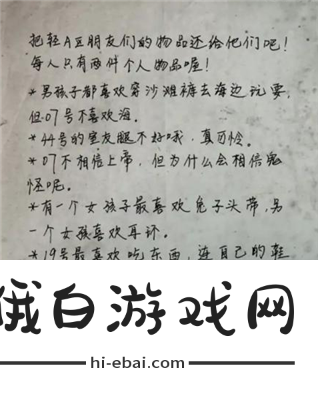 把轻A区朋友们的物品还给他们吧！
每人只有两件个人物品喔！
*男孩子都喜欢穿沙滩裤去海边玩耍，
但07号不喜欢海。
*44号的室友腿不好哦，真可怜。
*07不相信上帝，但为什么会相信鬼
怪呢。
*有一个女孩子最喜欢兔子头带，另
一个女孩喜欢耳环。
*19号最喜欢吃东西，连自己的鞋
俄白游戏网
hi-ebai.com